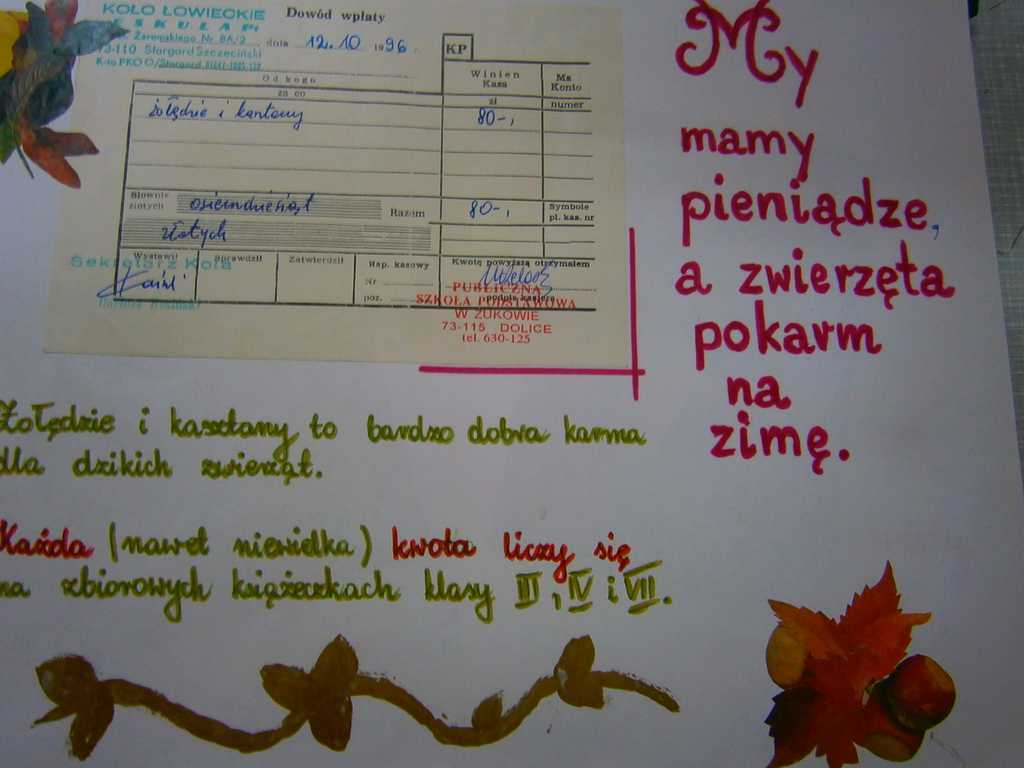 KOŁO ŁOWIECKIE
"ESKULAP"
Żeromskiego Nr 8A/2
73-110 Stargard Szczeciński
K-to PKO O/Stargard
Dowód wpłaty
dnia 12.10 1996 r.
KP
Od kogo
za co
Winien
Kasa
zł
Ma
Konto
numer
żołędzie i kasztany
80-,
Słownie
złotych
osiemdziesiąt
złotych
Razem
80-,
Symbole
pl. kas. nr
Wystawił
Sprawdził
Zatwierdził
Rap. kasowy
Nr
poz.
Kwotę powyższą otrzymałem
podpis kasjera
Sekretarz Koła
PUBLICZNA
SZKOŁA PODSTAWOWA
W ŻUKOWIE
73-115 DOLICE
tel. 630-125
My
mamy
pieniądze,
a zwierzęta
pokarm
na
zimę.
Żołędzie i kasztany to bardzo dobra karma
dla dzikich zwierząt.
Każda (nawet niewielka) kwota liczy się
na zbiorowych książeczkach klasy III, IV i VII.